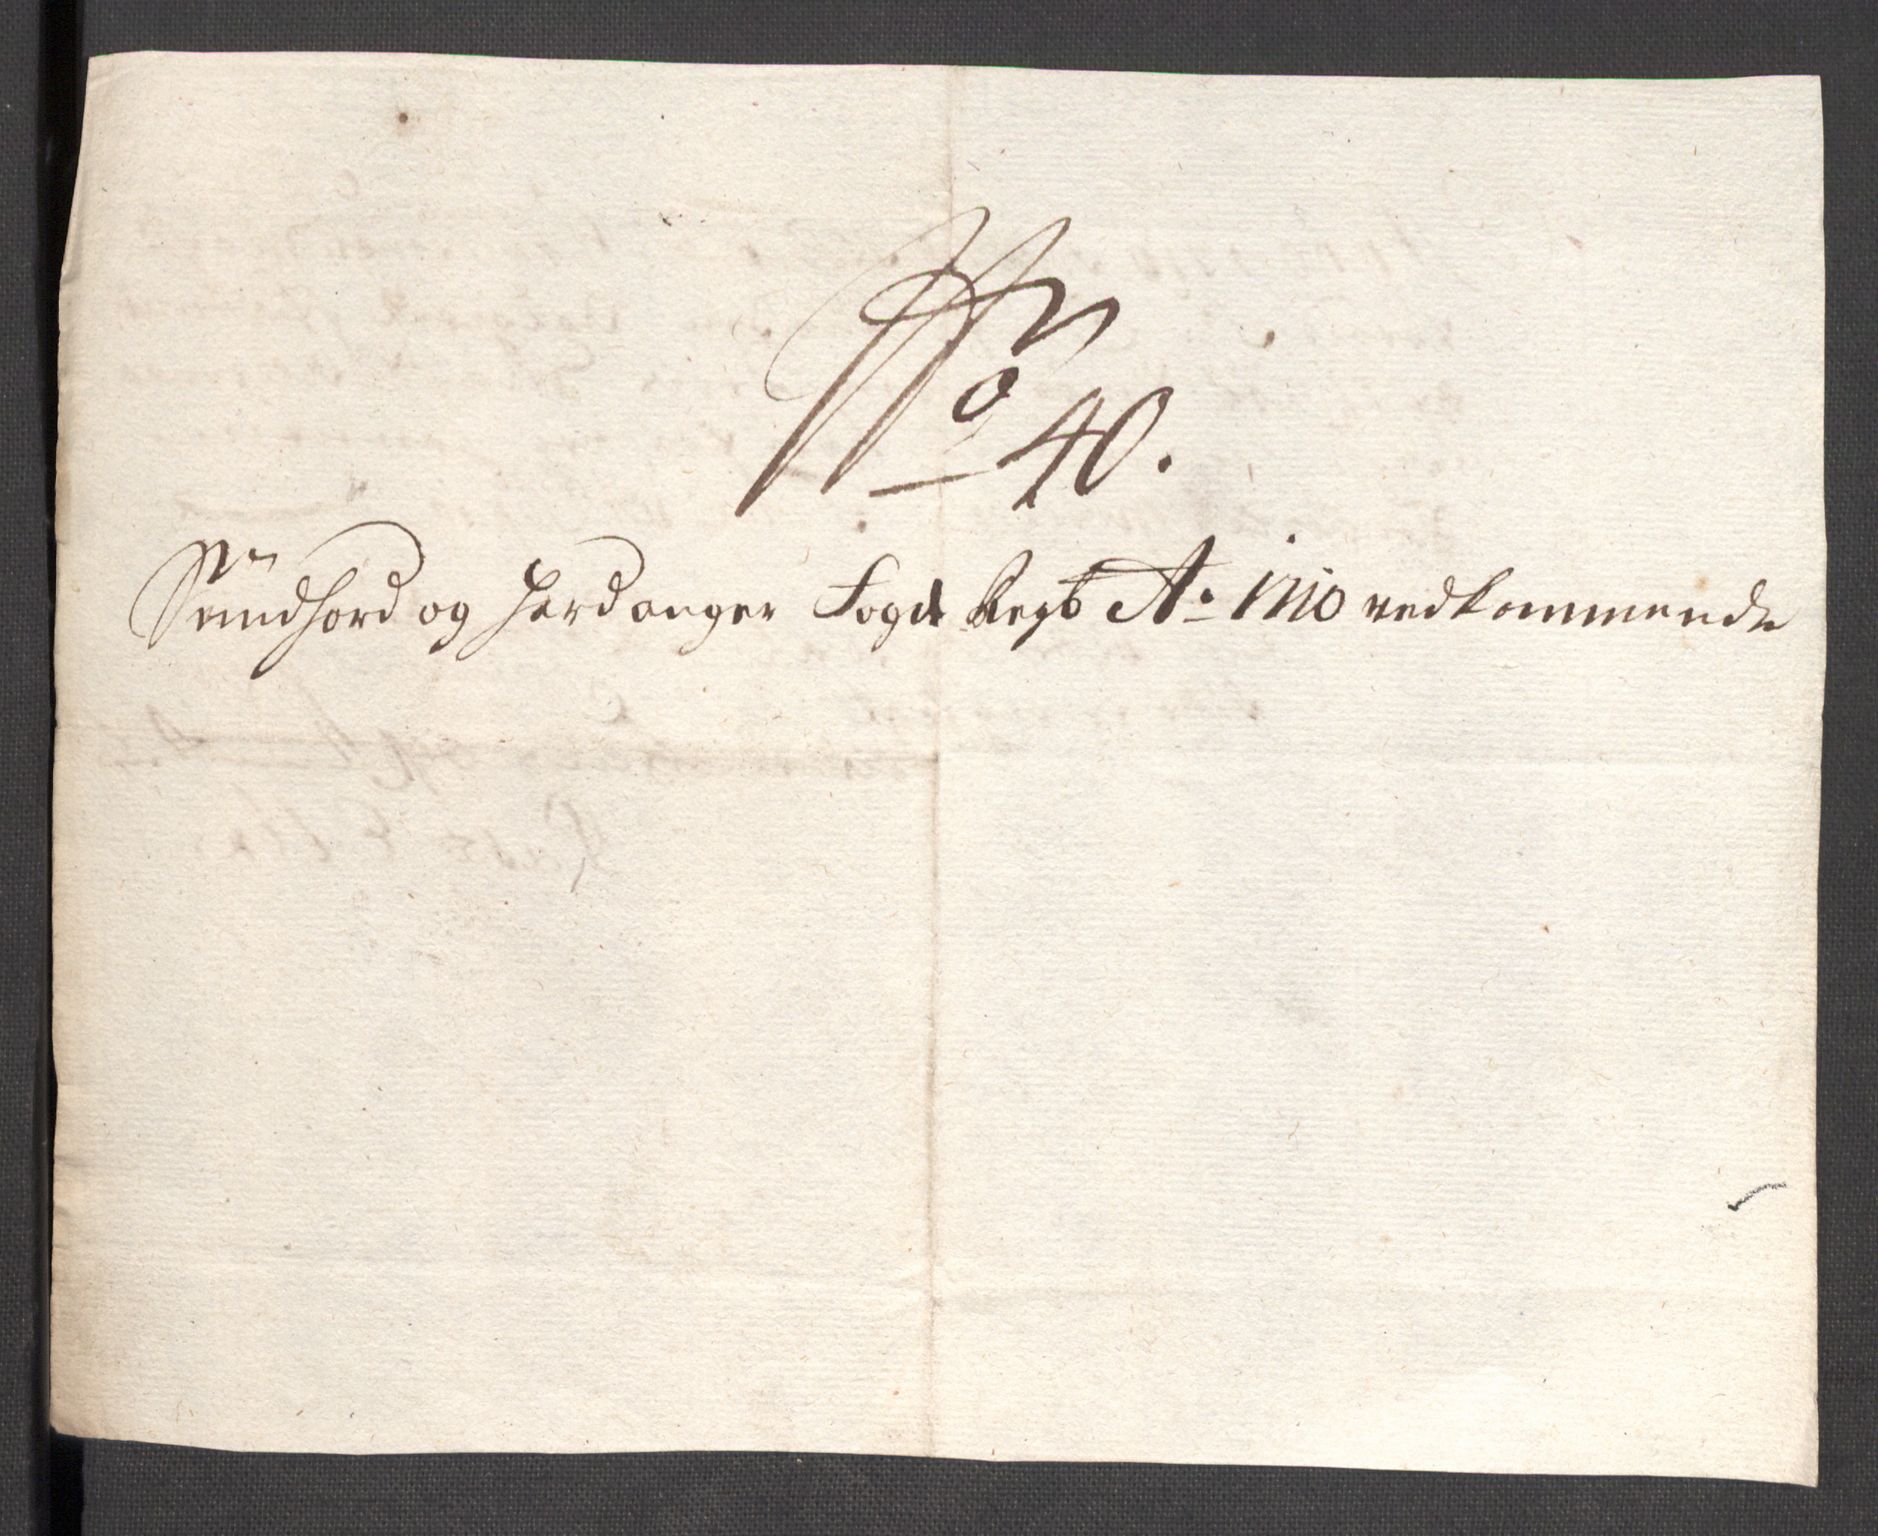 No 40.
Sundhord og Hardanger Fogd Regb Ao 1710 vedkommende